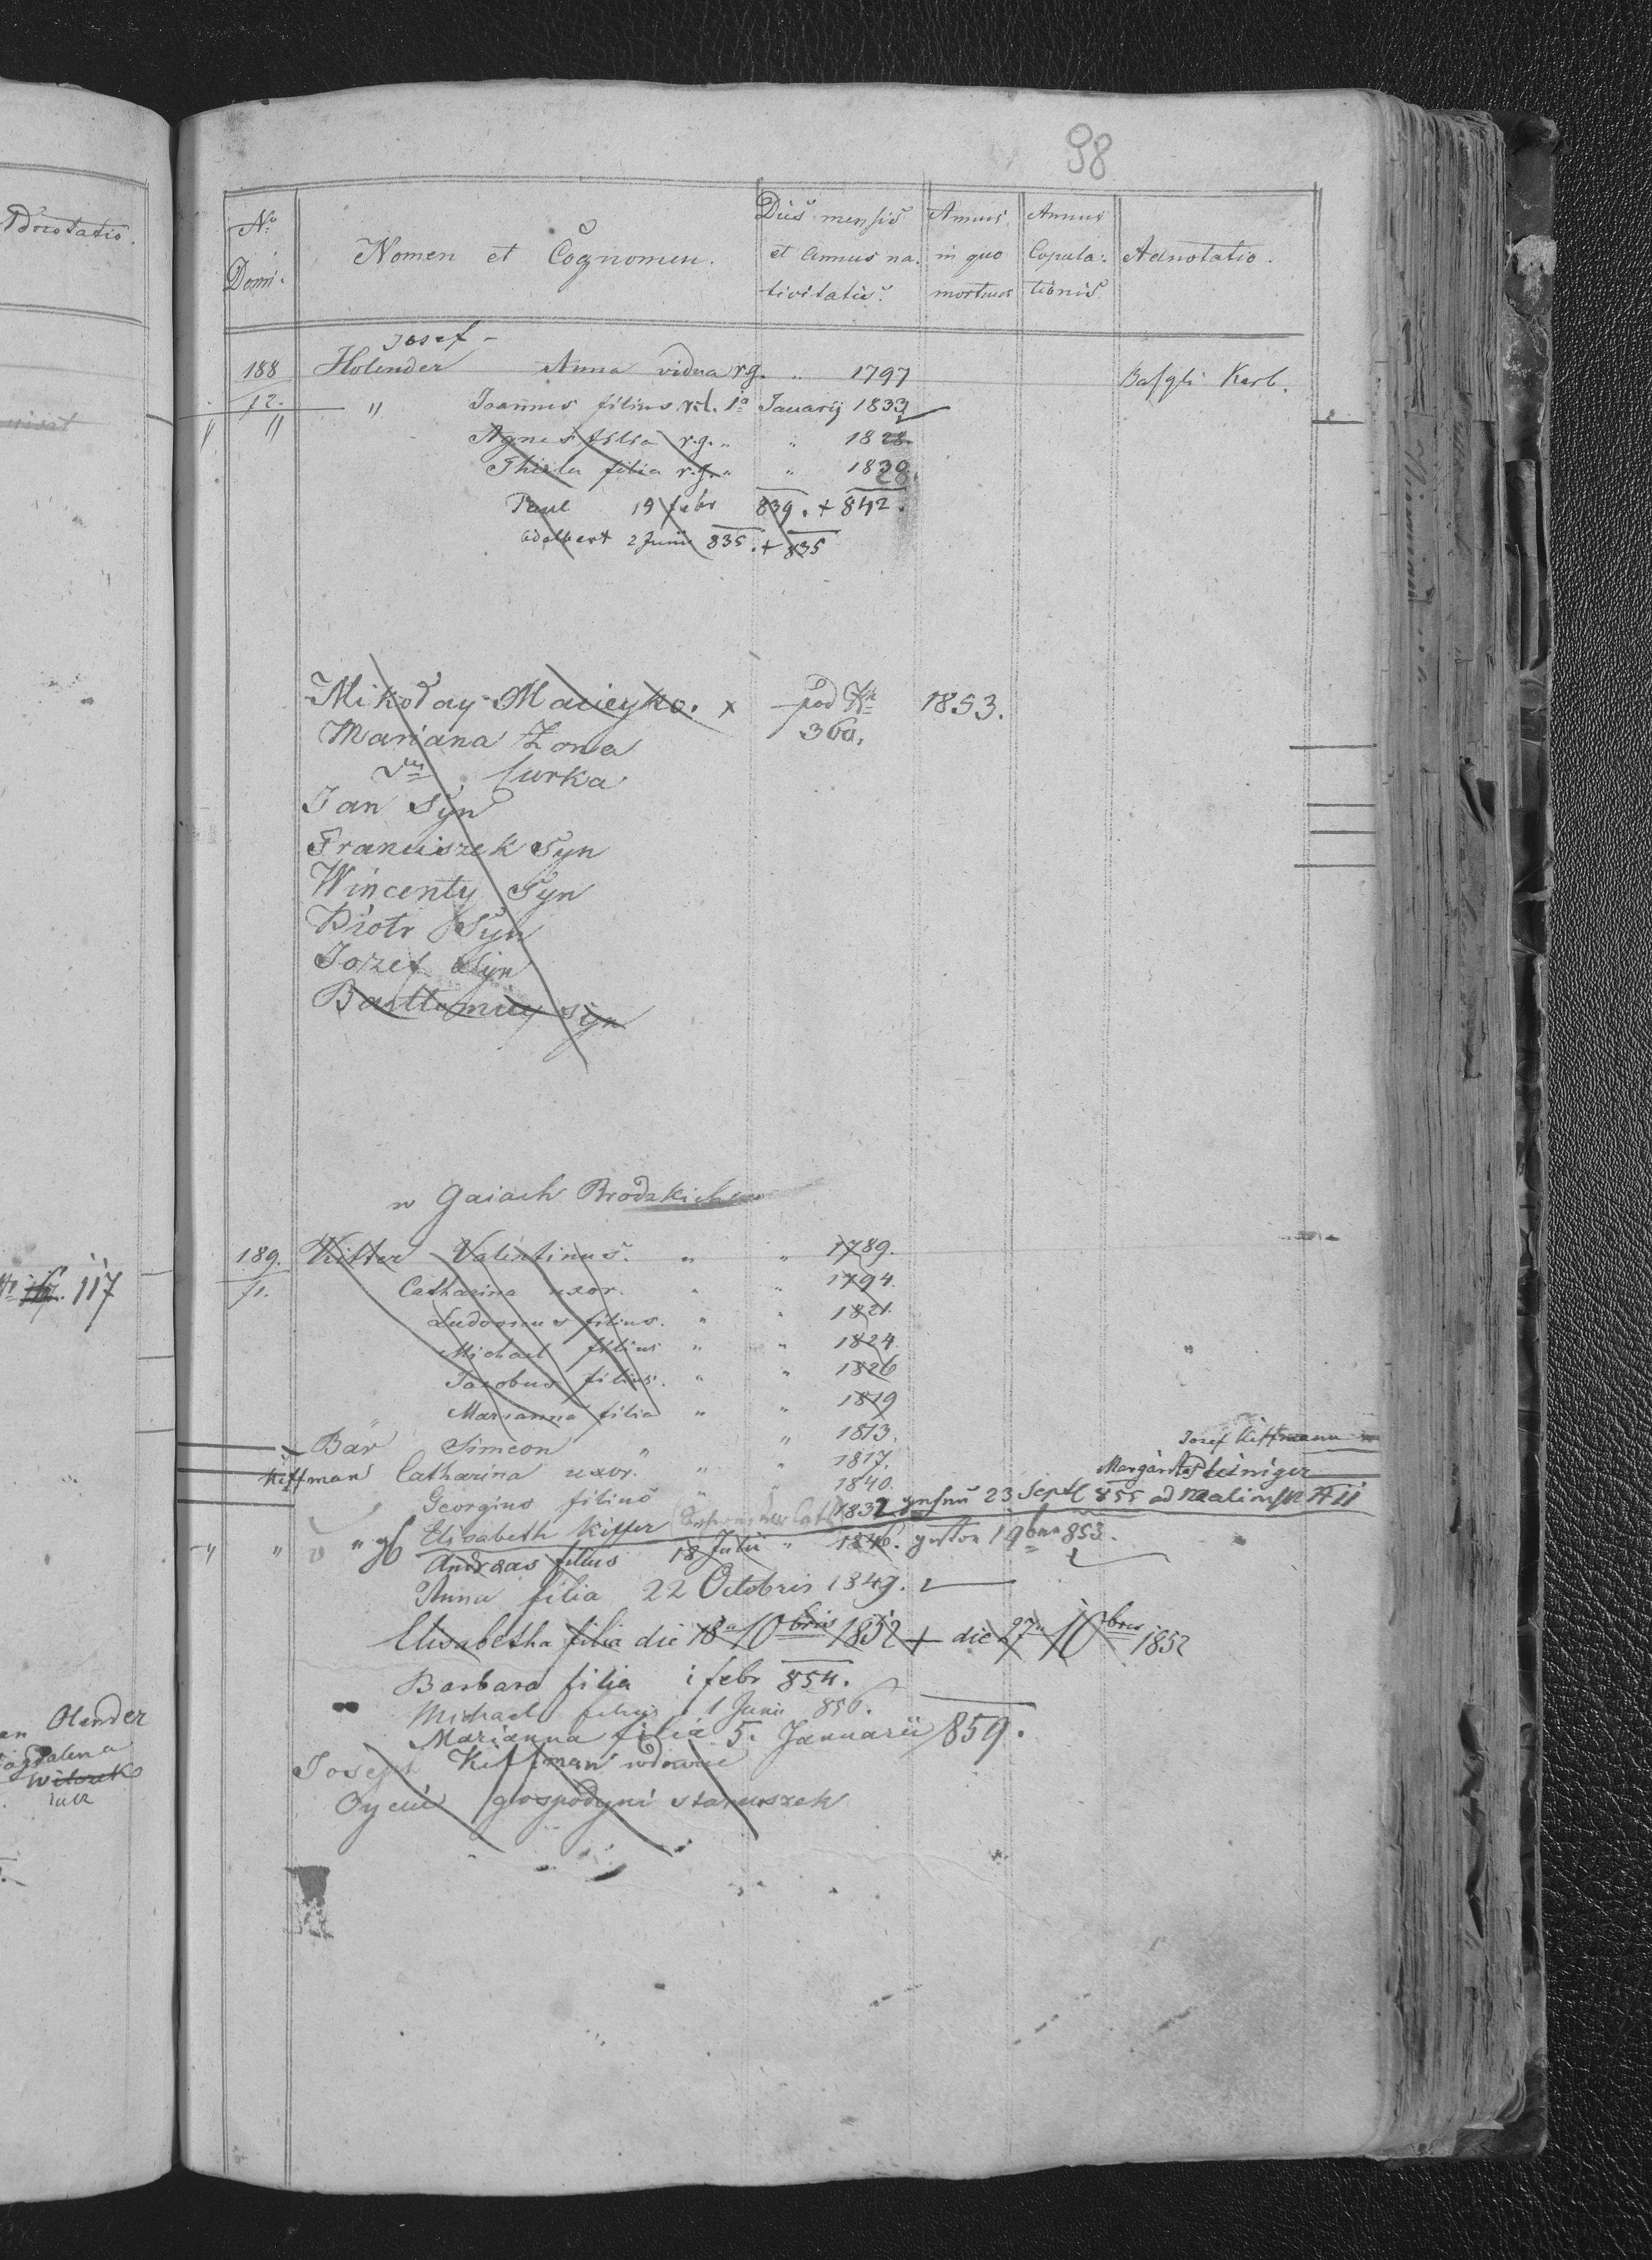 98
Adnotatio.
No Domi.
Nomen et Cognomen.
Dies mensis et Annus nativitatis.
Annus in quo mortuus
Annus Copulationis
Adnotatio.
Josef
188 Holender Anna vidua r.g. " 1797
12. " Joannes filius r.l. 1a Januarij 1833
" " Agnes filia r.g. " " 1828
Thecla filia r.g. " " 1830
28.
Paul 19 febr 839. + 842.
Adelbert 2 Junii 835. + 835
Mikołay Macieyko. x pod No 360. 1853.
Mariana Żona
Curka
Jan Syn
Franciszek Syn
Wincenty Syn
Piotr Syn
Jozef Syn
Bartłomiey Syn
w Gaiach Brodzkich
189. Kitter Valentinus. " " 1789.
11. Catharina uxor. " " 1794.
Ludovicus filius. " " 1821.
Michael filius " " 1824.
Jacobus filius. " " 1826
Marianna filia " " 1819
Bar Simeon " " 1813.
Josef Kiffmann
Kiffman Catharina uxor. " " 1817.
Margaritha
Georgius filius " " 1840.
" Elisabeth Kiffer 1832 23 Sept 855 ad
" " Andreas filius 18 Julii " 1846. 19 853.
Anna filia 22 Octobris 1849.
Elisabetha filia die 18a 10bris 1852 + die 27a 10bris 1852
Barbara filia 1 febr 854.
Michael filius 1 Junii 856.
Marianna filia 5. Januarii 859.
Joseph Kiffman wdowiec
Oyciec gospodyni staruszek
117
Olender